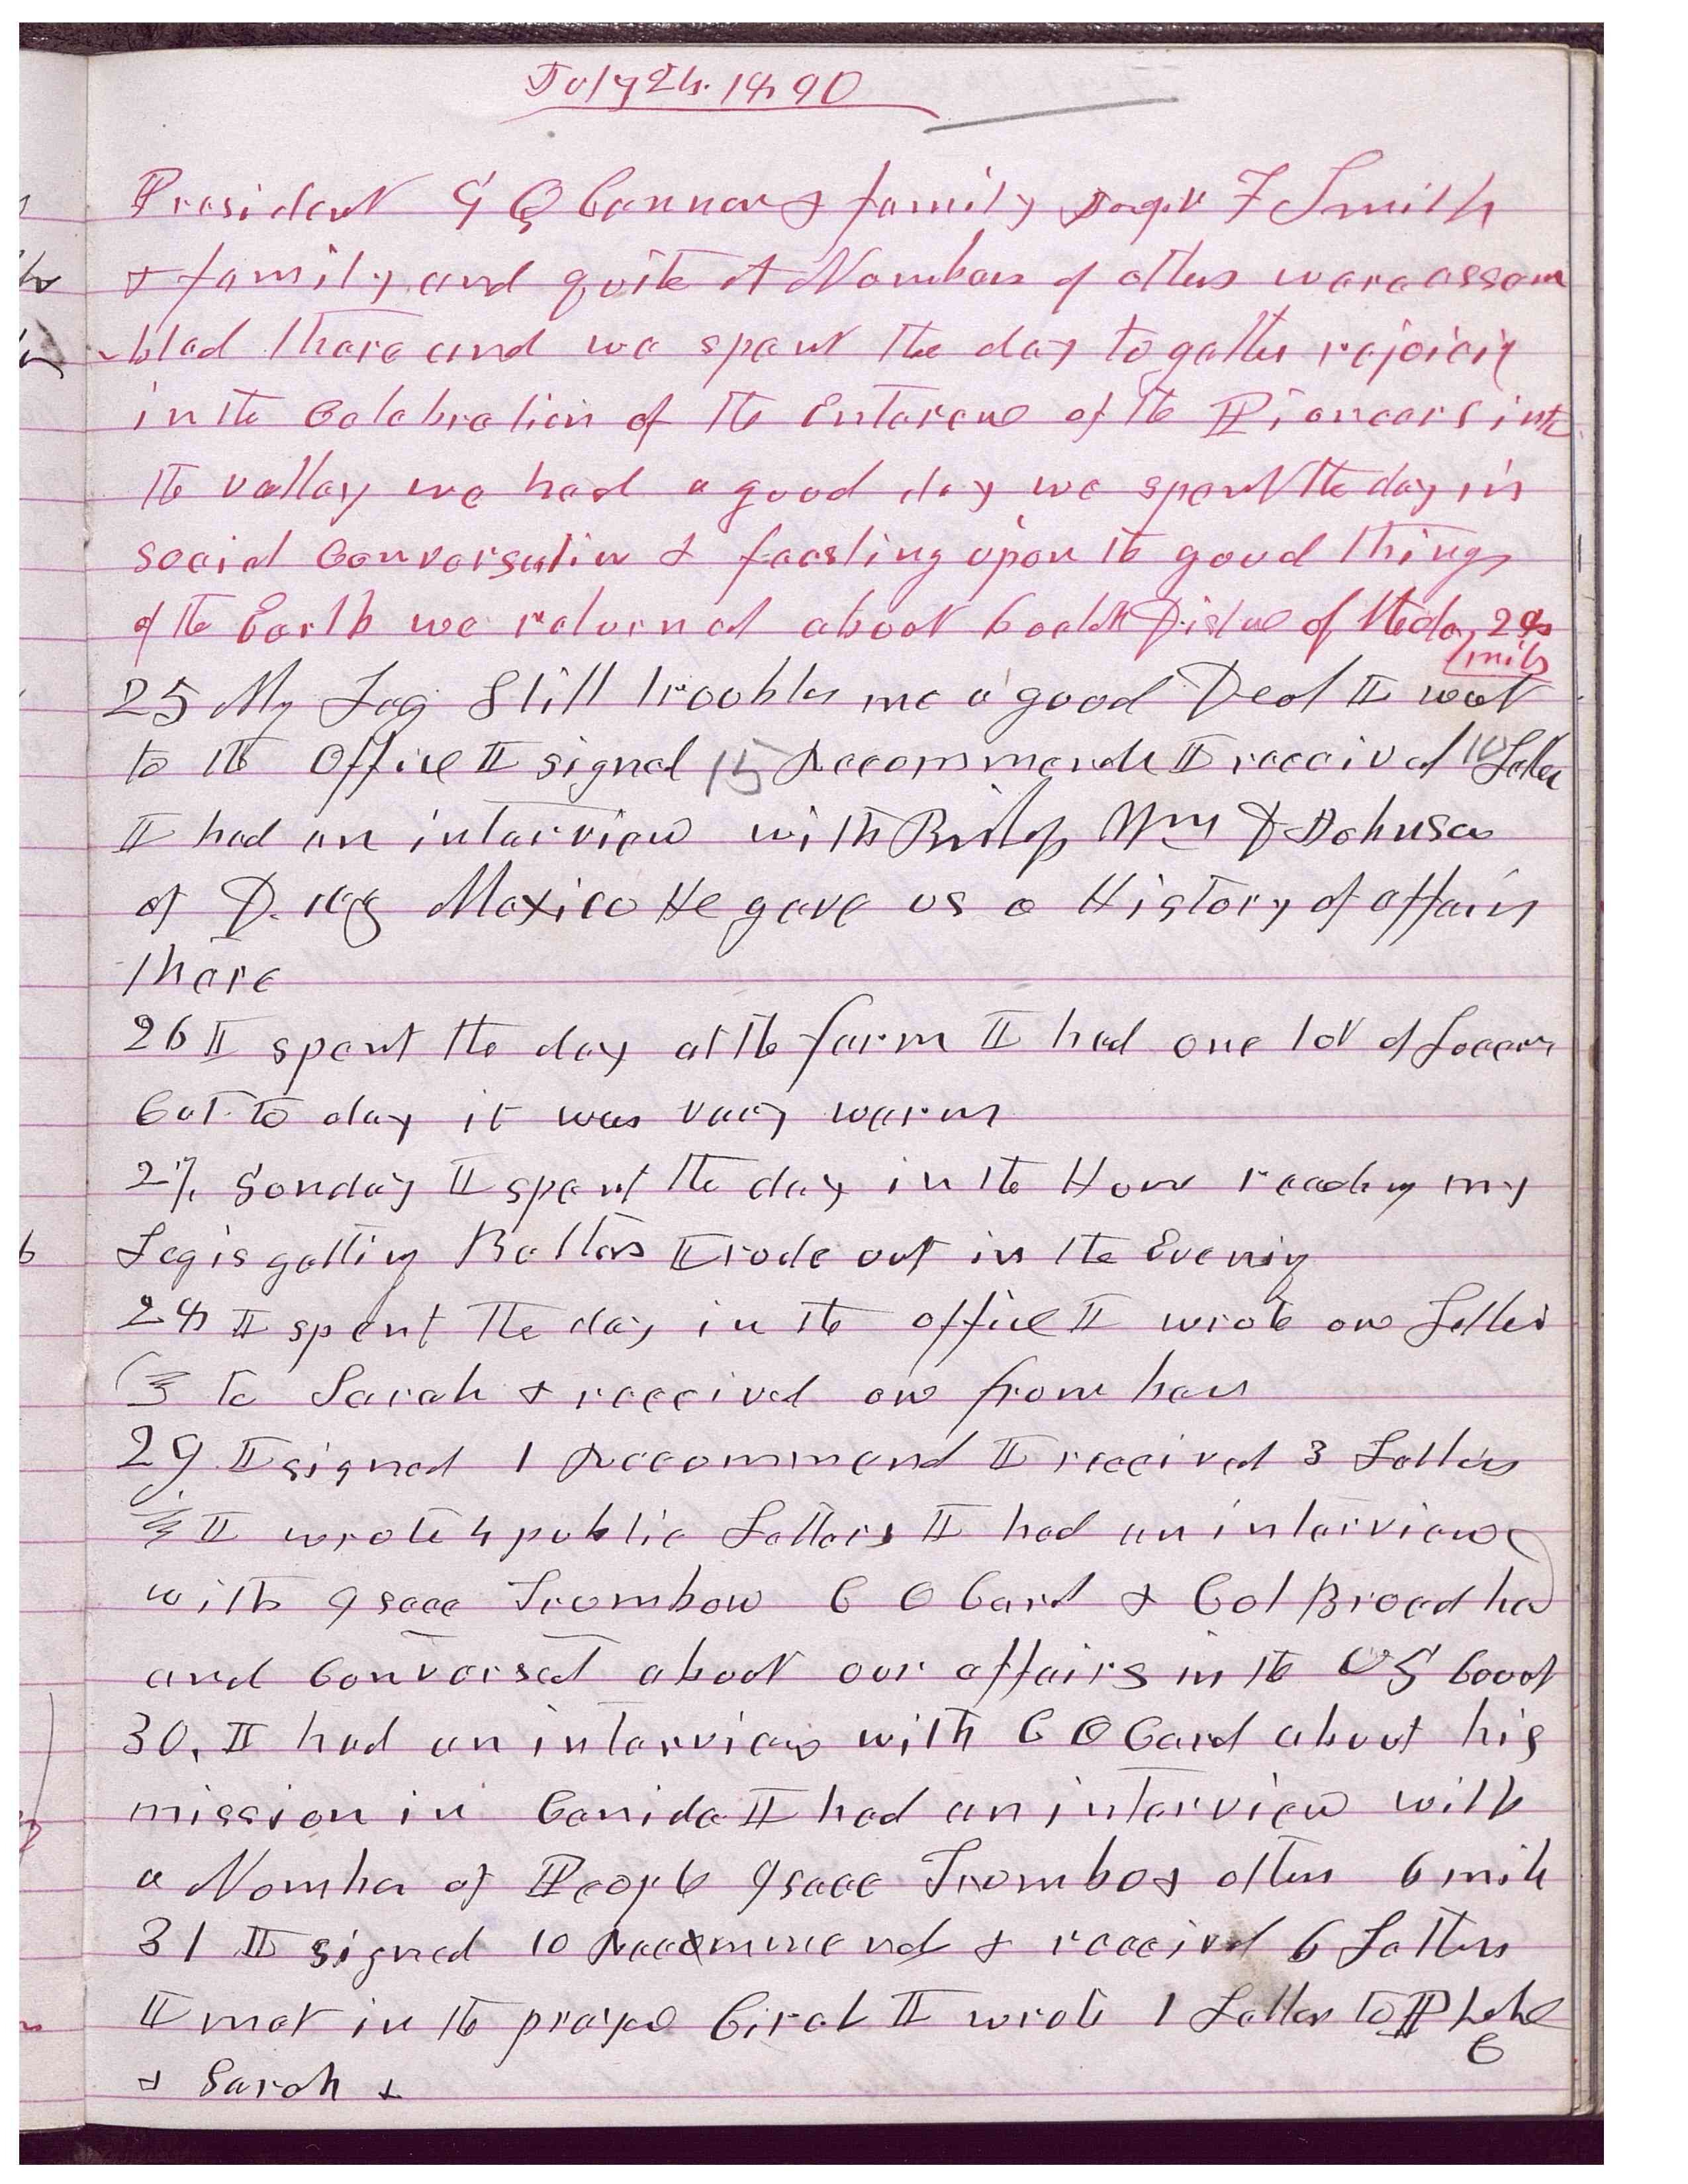 July 24. 1890
President G Q Cannon & family Joseph F Smith
& family and quite A Number of others were assem
bled there and we spent the day together rejoicing
in the Celebration of the Enterene of the Pioneers into
the valley we had a good day we spent the day in
social Conversation & feasting upon the good things
of the Earth we returned about 6 oclok Distance of the day 28
miles
25 My Leg Still troubles me a good Deal I went
to the Office I signed 15 Recommends I received 10 Letters
I had an interview with Bishop Wm D Johnson
of Diaz Mexico He gave us a History of affairs
there
26 I spent the day at the farm I had one lot of Lucern
Cut to day it was very warm
27. Sunday I spent the day in the House reading my
Leg is getting Better I rode out in the Evening
28 I spent the day in the office I wrote one Letter
to Sarah & received one from her
29 I signed 1 Recommend I received 3 Letters
I wrote 4 public Letters I had an interview
with Isaac Trombow C O Card & Col Broadhead
and Conversed about our affairs in the US Court
30. I had an interview with C O Card about his
mission in Canida I had an interview with
a Number of People Isaac Trombo & others 6 mile
31 I signed 10 Recommend & received 6 Letters
I met in the prayer Circle I wrote 1 Letter to Phebe
& Sarah &